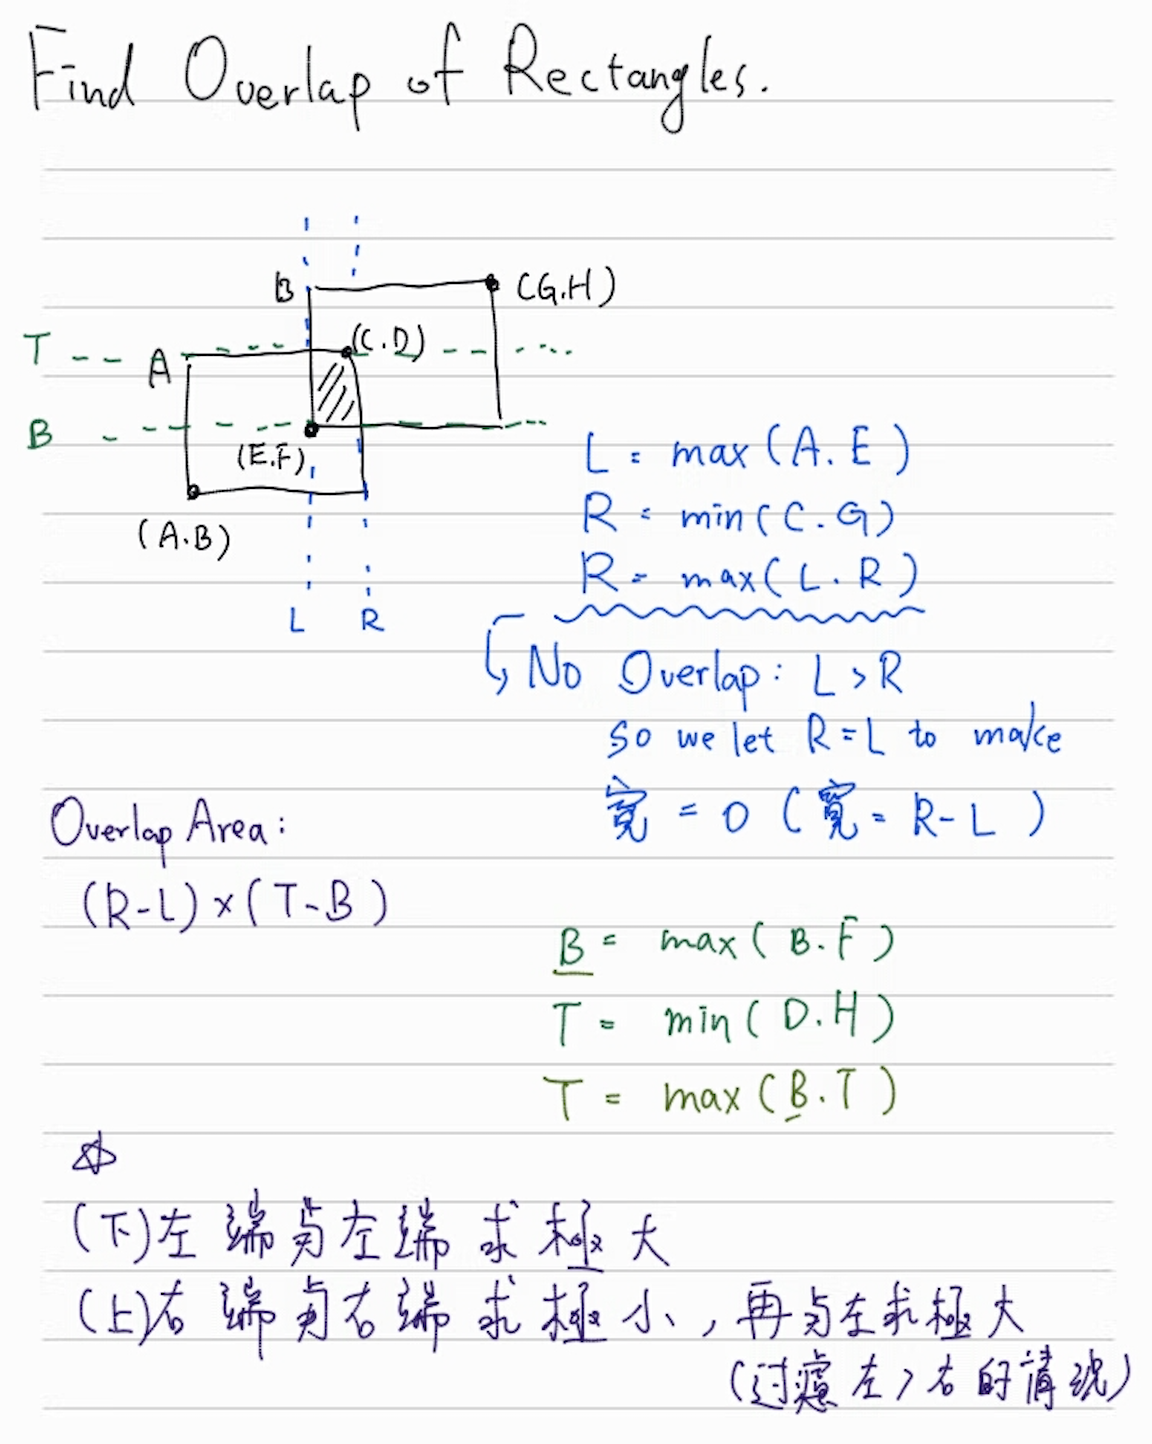 Find Overlap of Rectangles.
B (G.H)
T A (C.D)
B
(E.F)
(A.B)
L R
L = max (A.E)
R = min (C.G)
R = max (L.R)
No Overlap: L>R
so we let R=L to make
寬 = 0 (寬 = R-L)
Overlap Area:
(R-L)×(T-B)
B = max (B.F)
T = min (D.H)
T = max (B.T)
(下)左端与左端求極大
(上)右端与右端求極小,再与左求極大
(过慮左>右的情況)